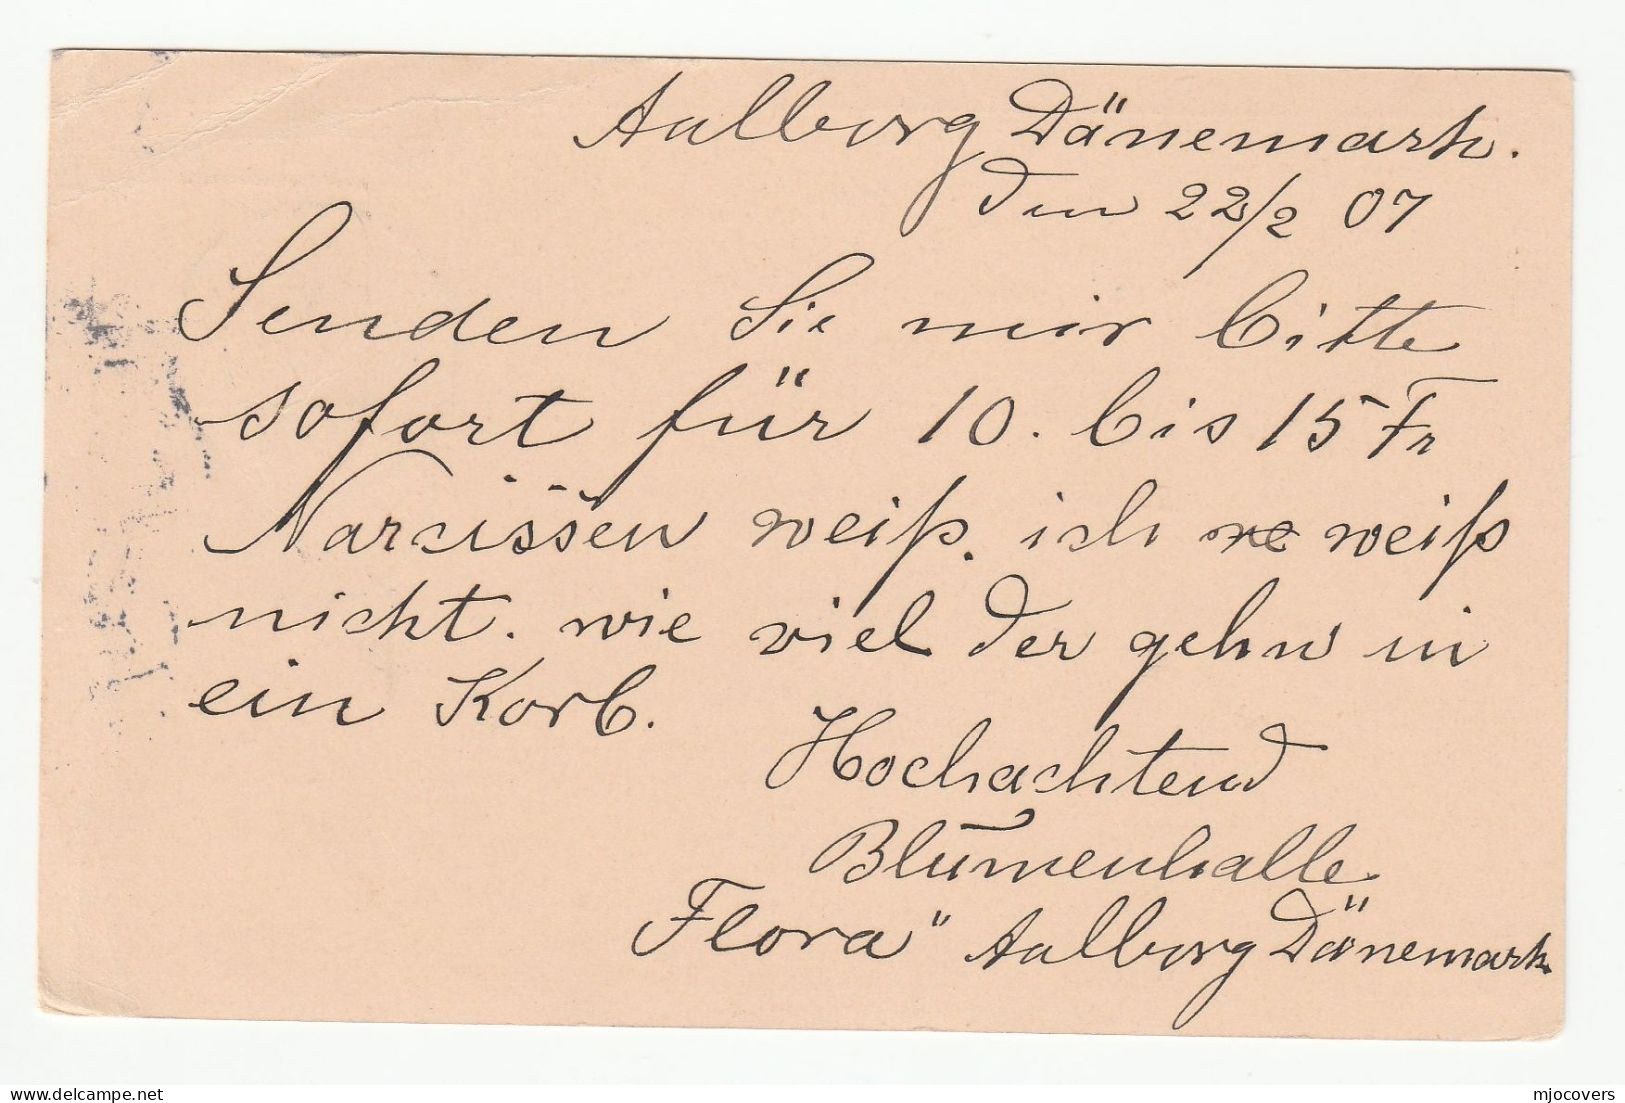 Aalborg Dänemark.
den 22/2 07
Senden Sie mir bitte
sofort für 10. bis 15 Fr
Narcissen weiß. ich we weiß
nicht. wie viel der gehn in
ein Korb.
Hochachtend
Blūmenhalle
Flora" Aalborg Dänemark
mjocovers